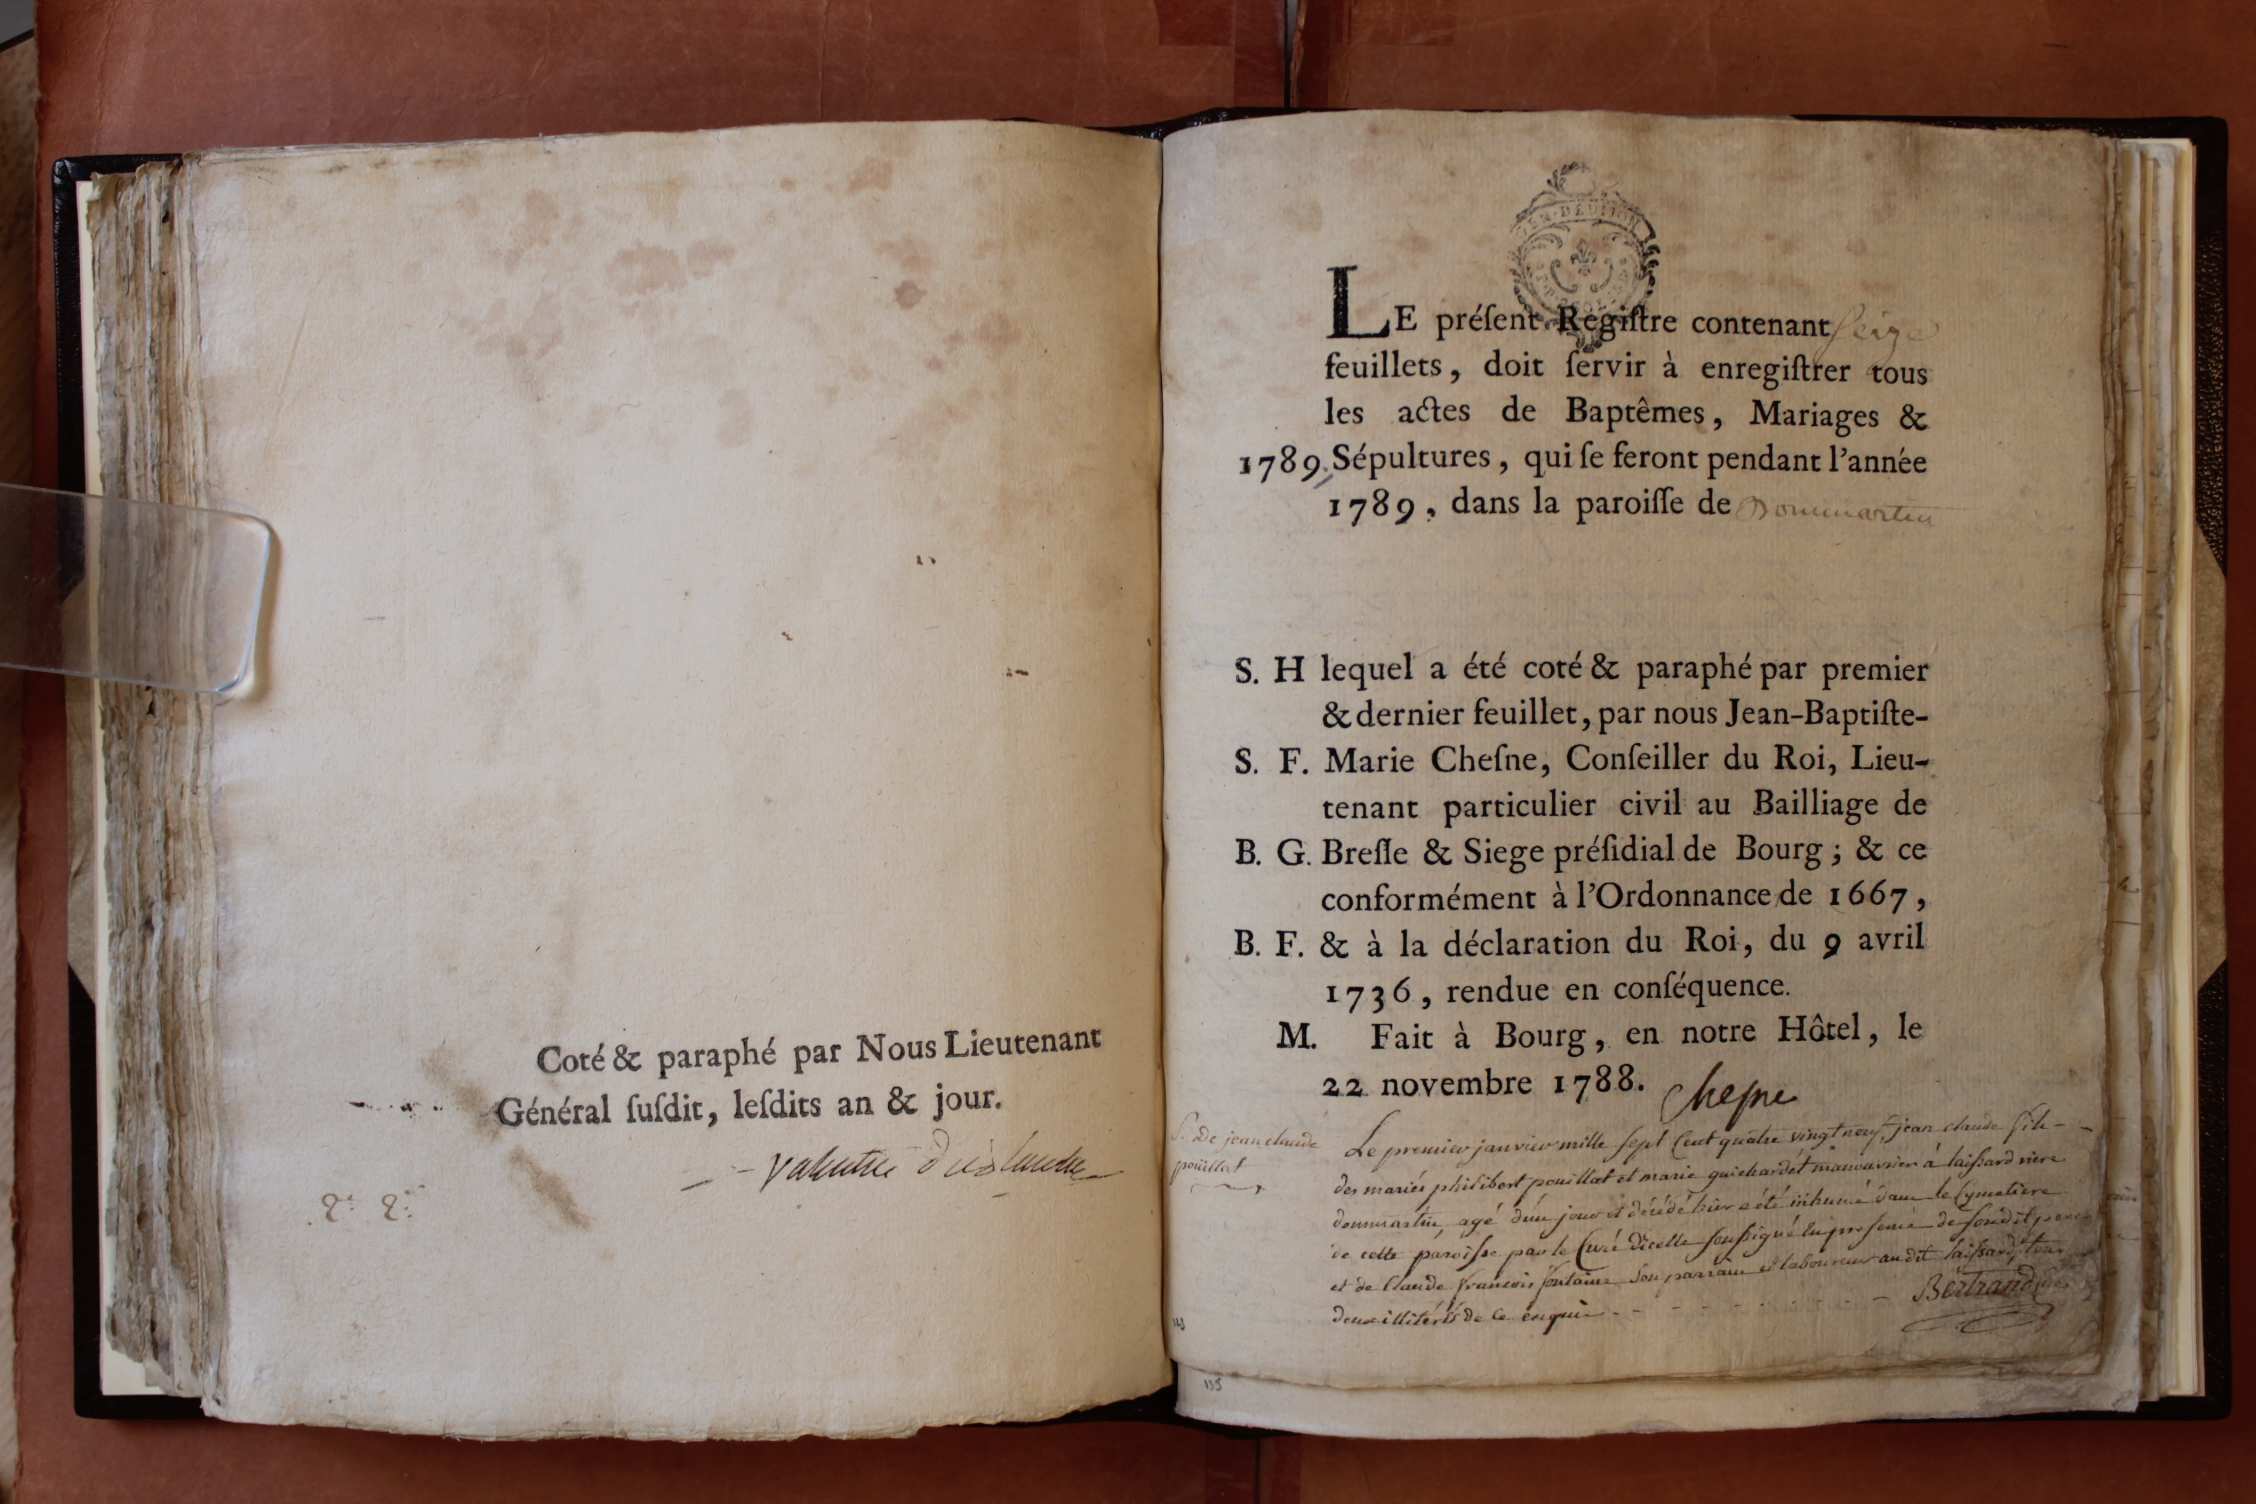 Coté & paraphé par Nous Lieutenant
Général ſuſdit, leſdits an & jour.
GEN. D
LE préſent Regiſtre contenant ſeize
feuillets, doit ſervir à enregiſtrer tous
les actes de Baptêmes, Mariages &
1789. Sépultures, qui ſe feront pendant l'année
1789, dans la paroiſſe de Dommartin
S. H lequel a été coté & paraphé par premier
& dernier feuillet, par nous Jean-Baptiſte-
S. F. Marie Cheſne, Conſeiller du Roi, Lieu-
tenant particulier civil au Bailliage de
B. G. Breſſe & Siege préſidial de Bourg ; & ce
conformément à l'Ordonnance de 1667,
B. F. & à la déclaration du Roi, du 9 avril
1736, rendue en conſéquence.
M. Fait à Bourg, en notre Hôtel, le
22 novembre 1788. Cheſne
S. De jean claude
pouillat
Le premier janvier mille sept Cent quatre vingt neuf, jean claude fils
des mariés philibert pouillat et marie guichardet manouvrier à laissard riere
dommartin, agé d'un jour et décédé hier a été inhumé dans le Cymetiere
de cette paroisse par le Curé d'icelle soussigné En presence de sondit pere
et de Claude francois fontaine son parrain et laboureur audit laissard, tous
deux illitérés de ce enquis
Bertrand
155